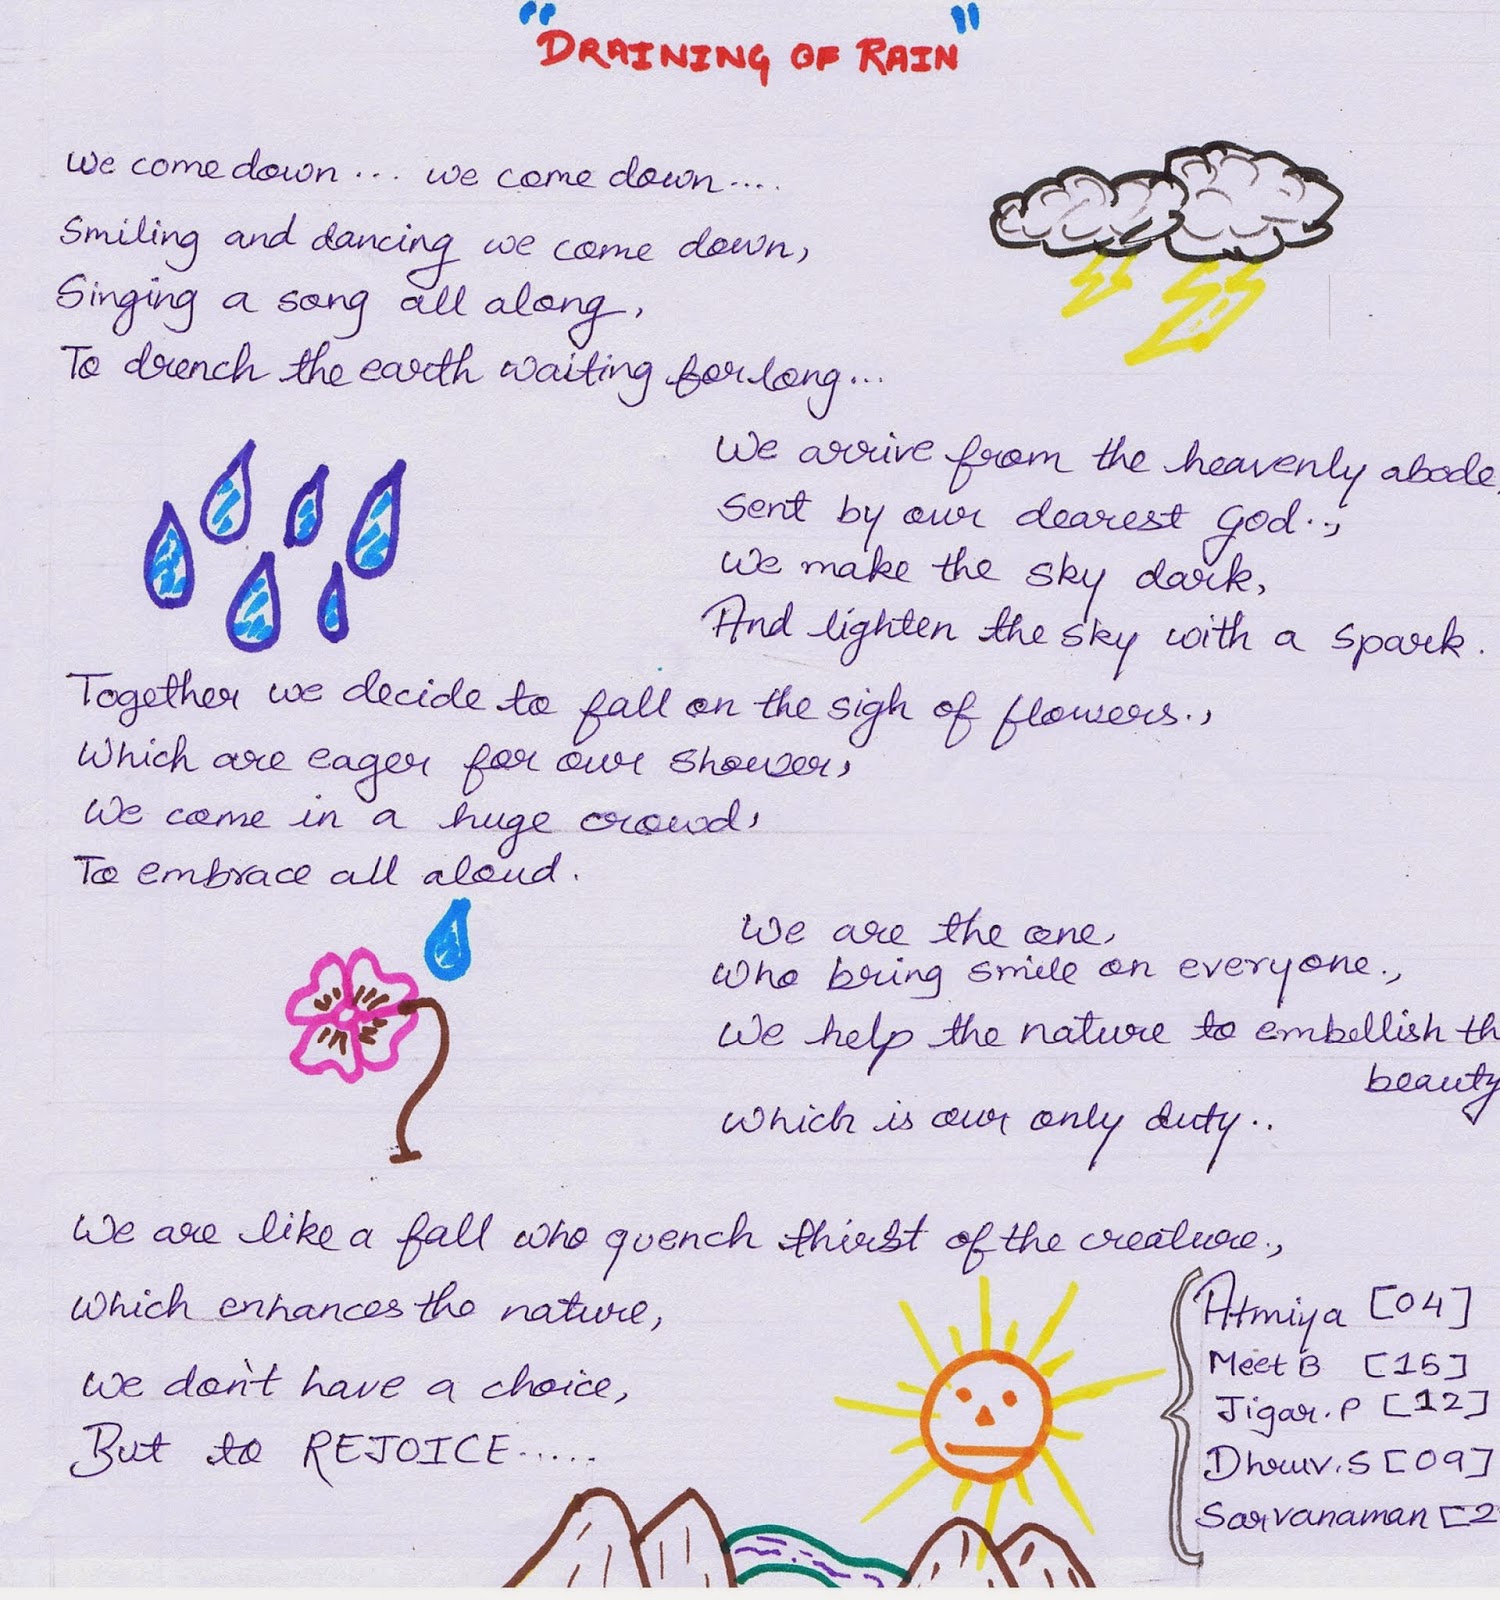 "DRAINING OF RAIN"
We come down... we come down....
Smiling and dancing we come down,
Singing a song all along,
To drench the earth waiting for long...
We arrive from the heavenly abode,
Sent by our dearest God..,
We make the sky dark,
And lighten the sky with a spark.
Together we decide to fall on the sigh of flowers.,
Which are eager for our shower,
We come in a huge crowd,
To embrace all aloud.
We are the one,
Who bring smile on everyone.,
We help the nature to embellish th
beauty
Which is our only duty..
We are like a fall who quench thirst of the creature.,
Which enhances the nature,
We don't have a choice,
But to REJOICE.....
Atmiya [04]
Meet B [15]
Jigar.P [12]
Dhruv.S [09]
Sarvanaman [2